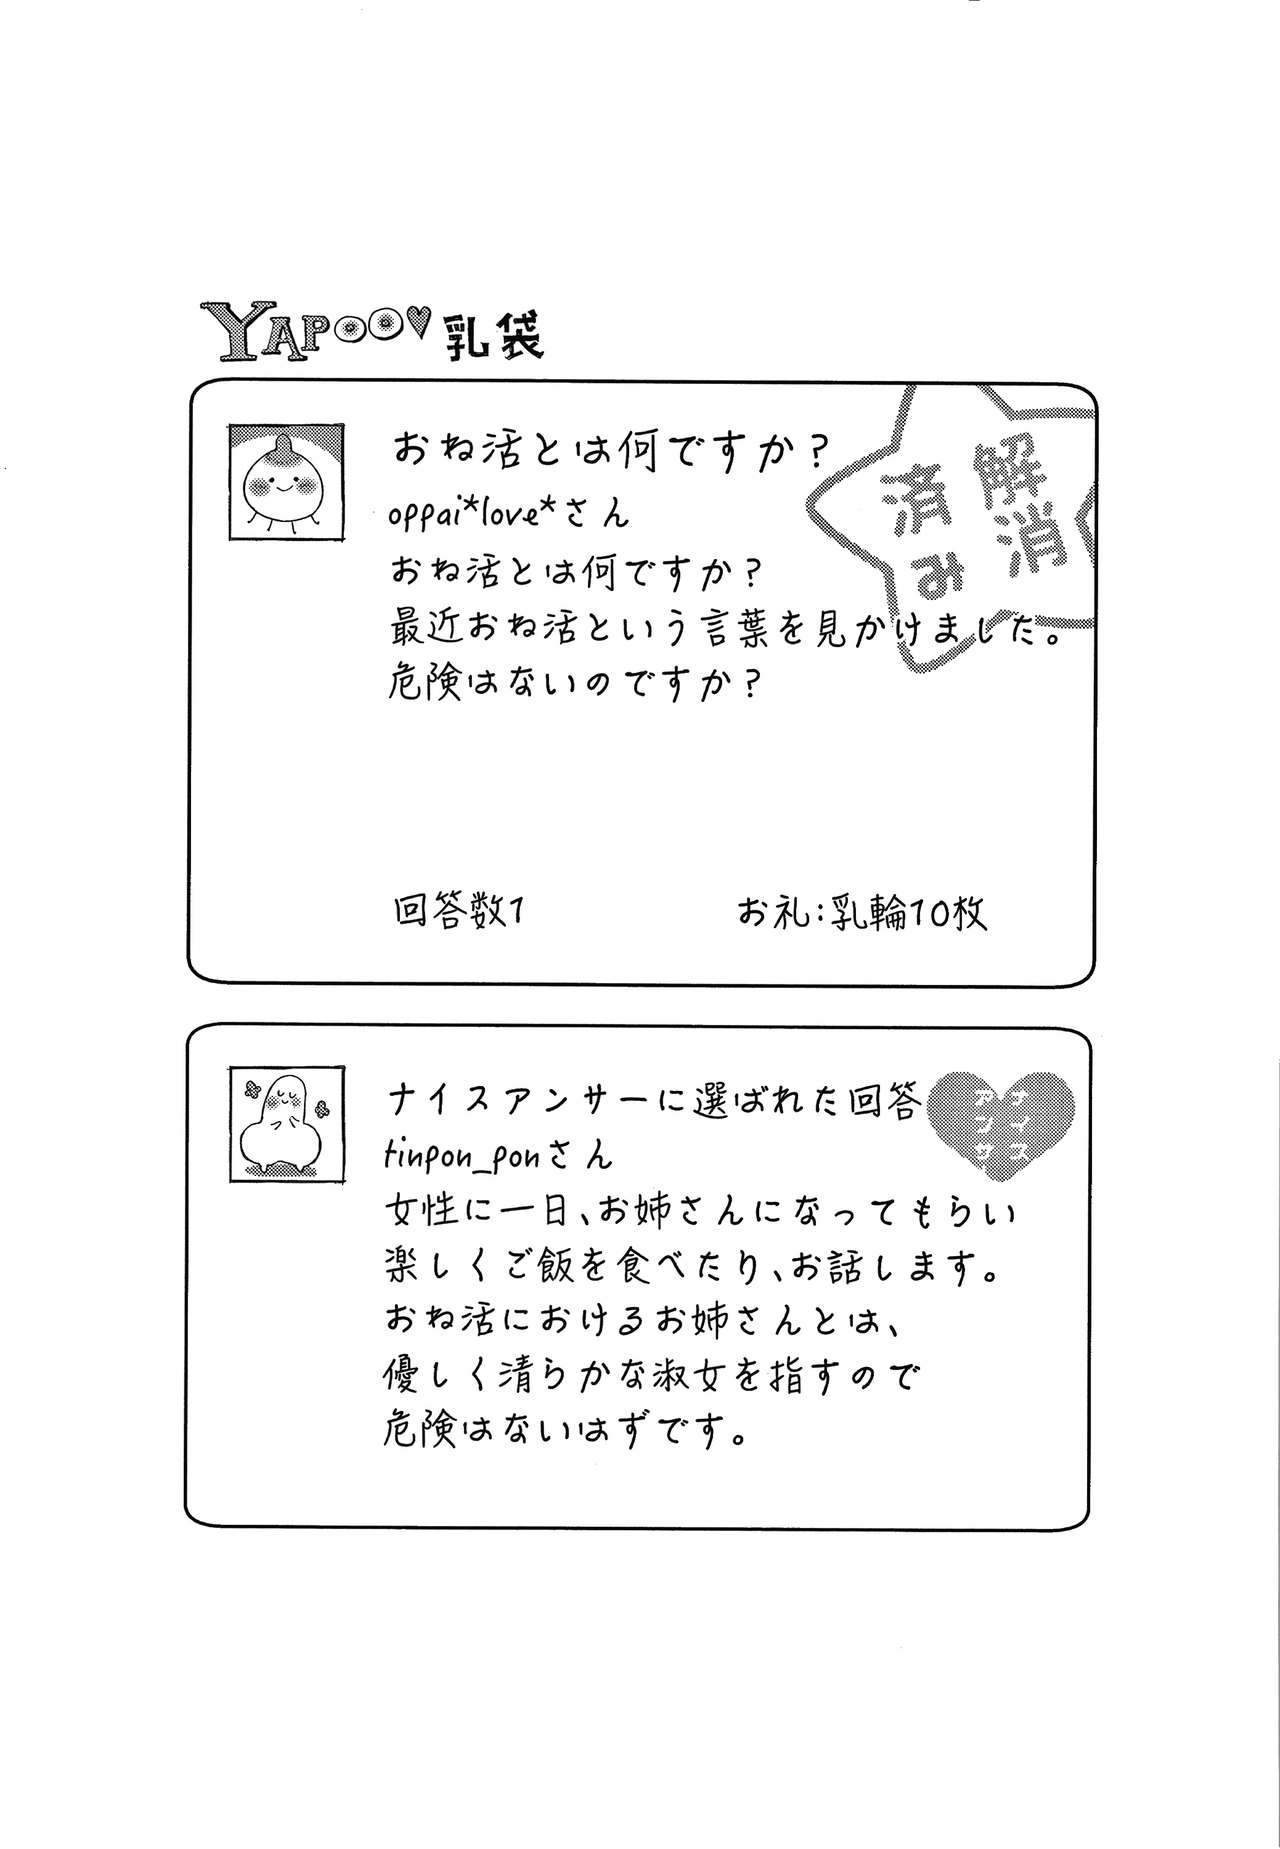 YAPOO♥乳袋
おね活とは何ですか?
oppai*love*さん
おね活とは何ですか?
最近おね活という言葉を見かけました。
危険はないのですか?
解消
済み
回答数1
お礼:乳輪10枚
ナイスアンサーに選ばれた回答
ナイス
アンサー
tinpon_ponさん
女性に一日、お姉さんになってもらい
楽しくご飯を食べたり、お話します。
おね活におけるお姉さんとは、
優しく清らかな淑女を指すので
危険はないはずです。